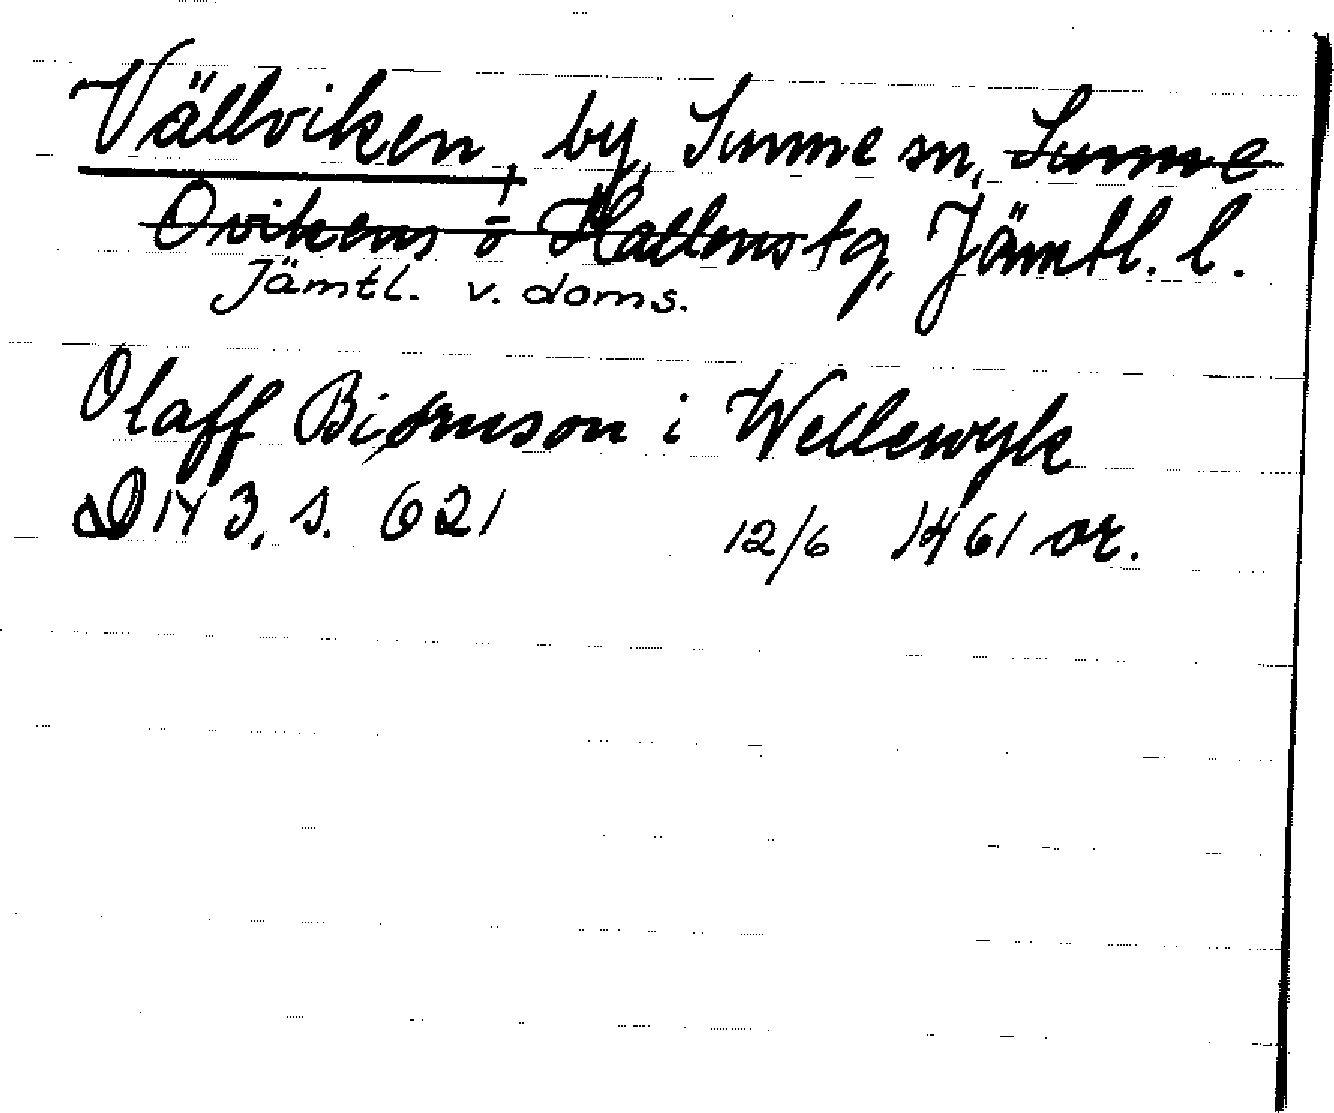 Vällviken, by, Sunne sn, Sunne
Ovikens o Hallens tg, Jämtl. l.
Jämtl. v. doms.
Olaff Biørnson i Wellewyk
DN 3, s. 621 12/6 1461 or.